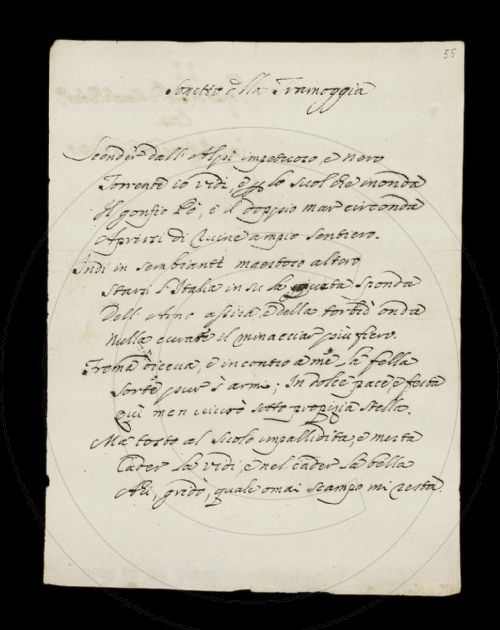 55
Sonetto della Tramoggia
Scender dall'Alpi impetuoso, e nero
Torrente io vidi, e p lo suol che inonda
Il gonfio Pò, e'l doppio mar circonda
Aprirsi di ruine ampio sentiero.
Indi in sembiante maestoso altero
Starsi l'Italia in su la sponda
Dell' assisa, e della torbid' onda
Nulla curare il minacciar più fiero.
Frema diceva, e incontro a me la fella
Sorte pur s'armi; In dolce pace, e festa
Qui men vivrò sotto propizia stella.
Ma tosto al suolo impallidita, e mesta
Cader la vidi, e nel cader la bella
Ahi, gridò, quale omai scampo mi resta.